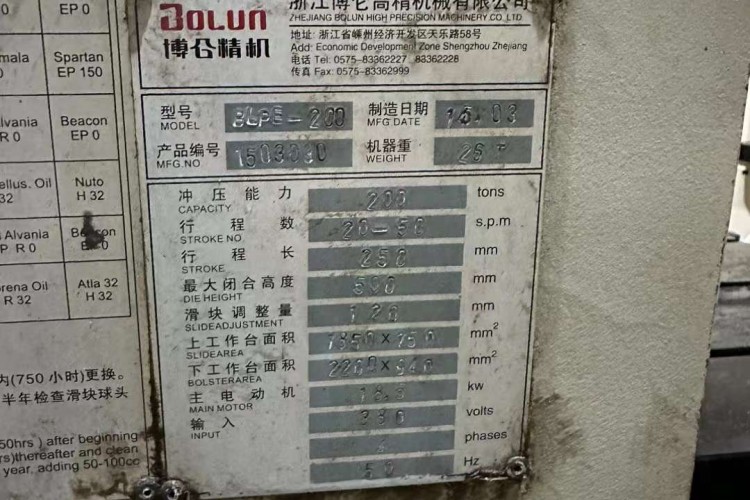 EP 0
EP 0
Spartan
EP 150
Alvania
R 0
Beacon
EP 0
Tellus. Oil
32
Nuto
H 32
Alvania
P R 0
Beacon
Orena Oil
R 32
Atla 32
H 32
为(750 小时)更换。
半年检查滑块球头
50hrs ) after beginning
rs)thereafter and clean
year, adding 50-100cc
BOLUN
博仑精机
浙江博仑高精机械有限公司
ZHEJIANG BOLUN HIGH PRECISION MACHINERY CO. LTD
地址: 浙江省嵊州经济开发区天乐路58号
Add: Economic Development Zone Shengzhou Zhejiang
电话 Tel: 0575-83362227 83362228
传真 Fax: 0575-83362999
型号 BLPE-200 制造日期 15.03
MODEL MFG DATE
产品编号 1503030 机器重
MFG.NO WEIGHT
冲压能力 200 tons
CAPACITY
行程数 20-50 s.p.m
STROKE NO
行程长 250 mm
STROKE
最大闭合高度 500 mm
DIE HEIGHT
滑块调整量 120 mm
SLIDEADJUSTMENT
上工作台面积 mm²
SLIDEAREA
下工作台面积 mm²
BOLSTERAREA
主电动机 18.5 kw
MAIN MOTOR
输入 380 volts
INPUT
phases
50 Hz